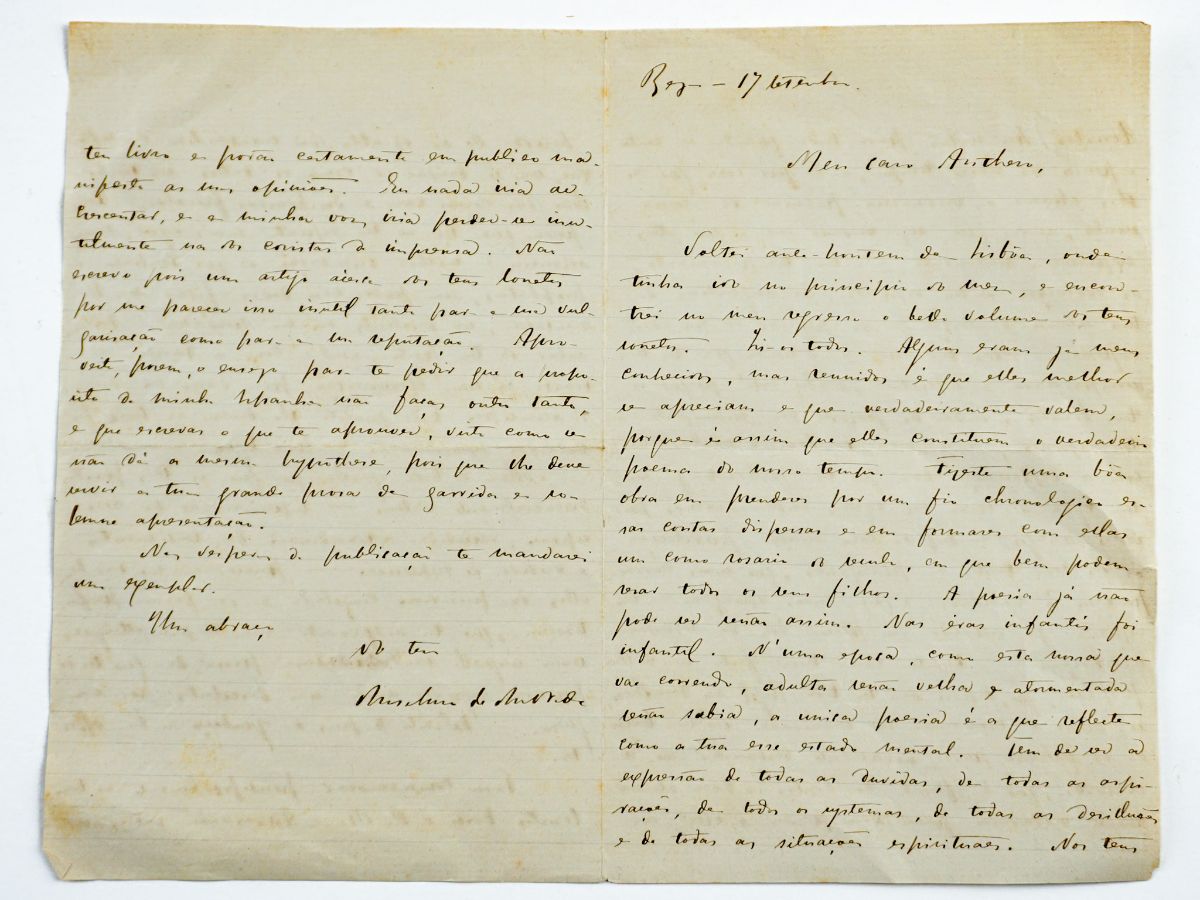 17 Setembro.
Meu caro Anthero,
Voltei ante-hontem de Lisbôa, onde
tinha ido no principio do mez, e encon-
trei no meu regresso o bello volume dos teus
sonetos. Li-os todos. Alguns eram já meus
conhecidos, mas reunidos é que elles melhor
se apreciam e que verdadeiramente valem,
porque é assim que elles constituem o verdadeiro
poema do nosso tempo. Fizeste uma bôa
obra em prenderes por um fio chronologico es-
sas contas dispersas e em formares com ellas
um como rosario do seculo, em que bem podem
resar todos os seus filhos. A poesia já não
pode ser senão assim. Nas éras infantis foi
infantil. N'uma epoca, como esta nossa que
vae correndo, adulta senão velha e atormentada
senão sabia, a unica poesia é a que reflecte
como a tua esse estado mental. Tem de ser a
expressão de todas as duvidas, de todas as aspi-
rações, de todos os systemas, de todas as desillusões
e de todas as situações espirituaes. Nos teus
teu livro e porão certamente em publico ma-
nifesta as suas opiniões. Eu nada iria ac-
crescentar, e a minha voz iria perder-se inu-
tilmente na da imprensa. Não
escrevo pois um artigo ácerca dos teus sonetos
por me parecer isso inutil tanto para a sua vul-
garisação como para a sua reputação. Apro-
veito, porem, o ensejo para te pedir que a propo-
sito da minha Hespanha não faças outro tanto,
e que escrevas o que te aprouver, visto como se
não dá a mesma hypothese, pois que lhe deve
servir a tua grande prosa de garrida e so-
lemne apresentação.
Nas vesperas da publicação te mandarei
um exemplar.
Um abraço
do teu
Anselmo de Andrade